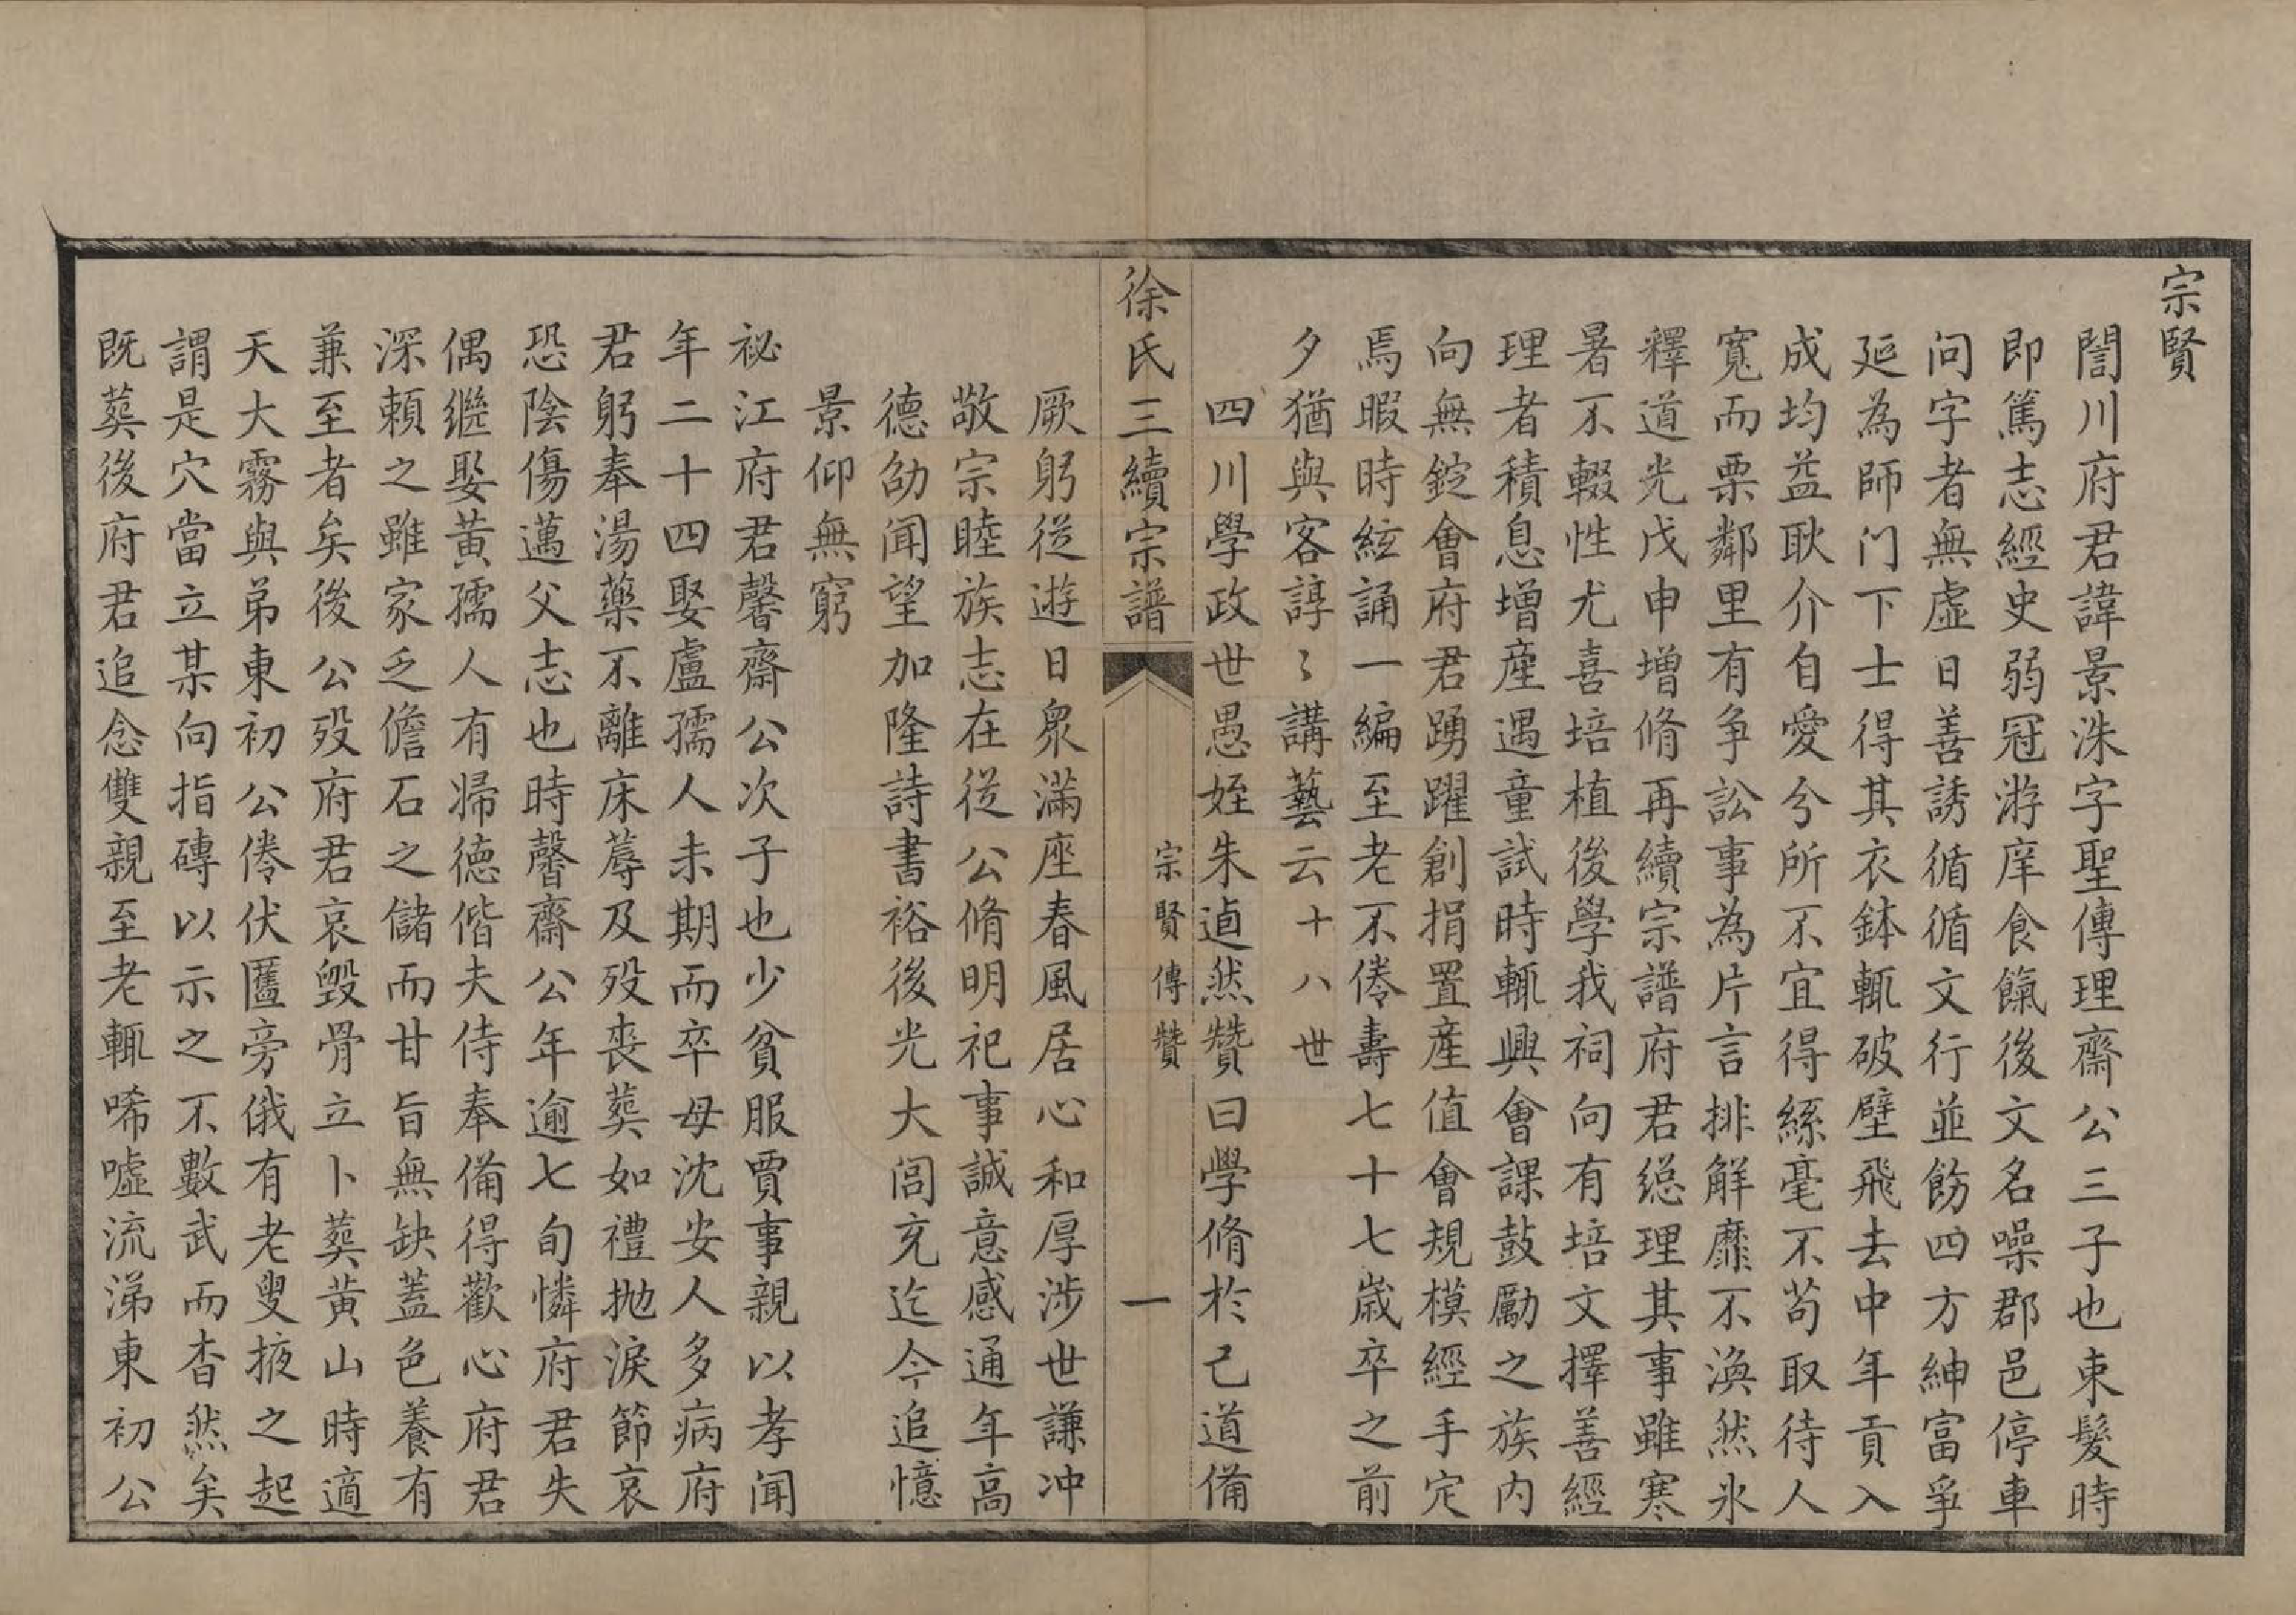 宗賢
誾川府君諱景洙字聖傳理齋公三子也束髮時
即篤志經史弱冠游庠食餼後文名噪郡邑停車
問字者無虛日善誘循循文行並飭四方紳富爭
延為師门下士得其衣鉢輒破壁飛去中年貢入
成均益耿介自愛兮所不宜得絲毫不苟取待人
寬而栗鄰里有争訟事為片言排解靡不渙然氷
釋道光戊申增脩再續宗譜府君緫理其事雖寒
暑不輟性尤喜培植後學我祠向有培文擇善經
理者積息增産遇童試時輒興會課鼓勵之族内
向無錠會府君踴躍創捐置産值會規模經手定
焉暇時絃誦一編至老不倦壽七十七歲卒之前
夕猶與客諄〻講藝云十八世
四川學政世愚姪朱逌然贊曰學脩於己道備
徐氏三續宗譜
宗賢傳贊
一
厥躬從遊日衆滿座春風居心和厚涉世謙冲
敬宗睦族志在從公脩明祀事誠意感通年高
德劭聞望加隆詩書裕後光大閭充迄今追憶
景仰無窮
祕江府君馨齋公次子也少貧服賈事親以孝聞
年二十四娶盧孺人未期而卒母沈安人多病府
君躬奉湯藥不離床蓐及歿喪葬如禮拋淚節哀
恐陰傷邁父志也時馨齋公年逾七旬憐府君失
偶繼娶黃孺人有婦德偕夫侍奉備得歡心府君
深賴之雖家乏儋石之儲而甘旨無缺蓋色養有
兼至者矣後公歿府君哀毀骨立卜葬黄山時適
天大霧與弟東初公倦伏匶旁俄有老叟掖之起
謂是穴當立某向指磚以示之不數武而杳然矣
既葬後府君追念雙親至老輒唏噓流涕東初公